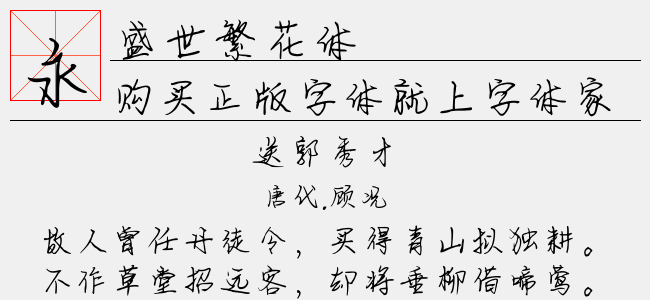 永
盛世繁花体
购买正版字体就上字体家
送郭秀才
唐代.顾况
故人曾任丹徒令，买得青山拟独耕。
不作草堂招远客，却将垂柳借啼莺。